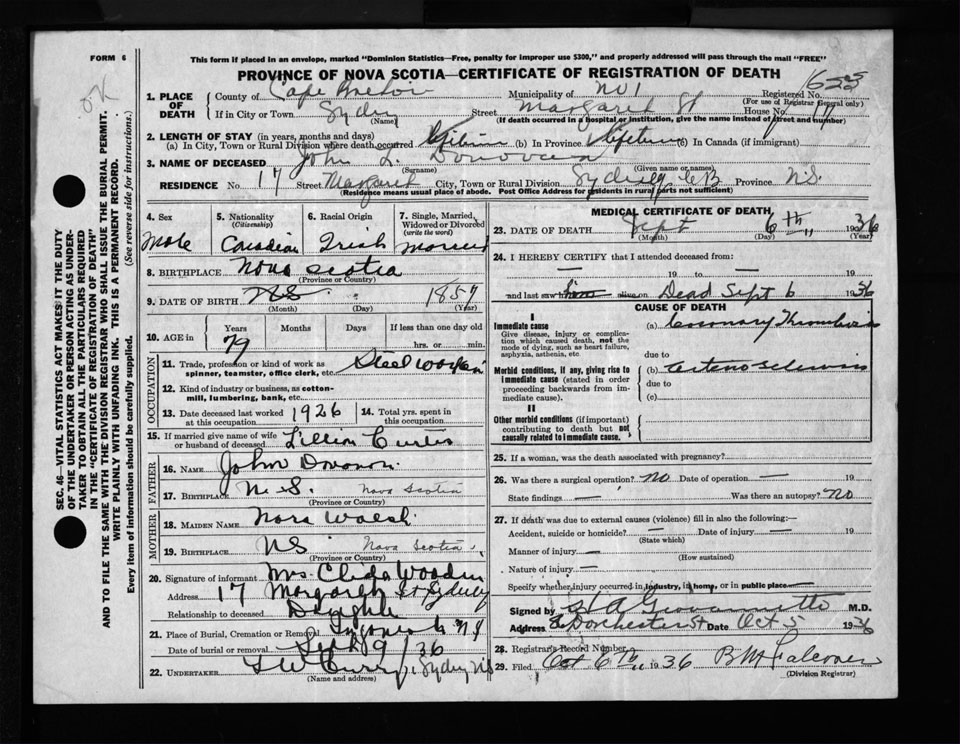 FORM 6
This form if placed in an envelope, marked "Dominion Statistics—Free, penalty for improper use $300," and properly addressed will pass through the mail "FREE"
PROVINCE OF NOVA SCOTIA—CERTIFICATE OF REGISTRATION OF DEATH
OK
1. PLACE OF DEATH
County of Cape Breton Municipality of No 1 Registered No.
(For use of Registrar General only)
If in City or Town Sydney Street Margaret St House No. 17
(Name) (If death occurred in a hospital or institution, give the name instead of street and number)
2. LENGTH OF STAY (in years, months and days)
(a) In City, Town or Rural Division where death occurred Lifetime (b) In Province Lifetime (c) In Canada (if immigrant)
3. NAME OF DECEASED John L. Donovan
(Surname) (Given name or names)
RESIDENCE No. 17 Street Margaret City, Town or Rural Division Sydney CB Province N.S.
(Residence means usual place of abode. Post Office Address for residents in rural parts not sufficient)
4. Sex
Male
5. Nationality
(Citizenship)
Canadian
6. Racial Origin
Irish
7. Single, Married, Widowed or Divorced
(write the word)
Married
8. BIRTHPLACE Nova Scotia
(Province or Country)
9. DATE OF BIRTH N.S. 1857
(Month) (Day) (Year)
10. AGE in
Years Months Days If less than one day old
79 hrs. or min.
OCCUPATION
11. Trade, profession or kind of work as spinner, teamster, office clerk, etc. Steel worker
12. Kind of industry or business, as cotton-mill, lumbering, bank, etc.
13. Date deceased last worked at this occupation 1926
14. Total yrs. spent in this occupation
15. If married give name of wife or husband of deceased Lillian Curtis
FATHER
16. NAME John Donovan
17. BIRTHPLACE N.S. Nova Scotia
(Province or Country)
MOTHER
18. MAIDEN NAME Nora Walsh
19. BIRTHPLACE NS Nova Scotia
(Province or Country)
20. Signature of informant Mrs. Wooden
Address 17 Margaret St Sydney
Relationship to deceased Daughter
21. Place of Burial, Cremation or Removal N.S.
Date of burial or removal Sept 9/36
22. UNDERTAKER Sydney NS
(Name and address)
MEDICAL CERTIFICATE OF DEATH
23. DATE OF DEATH Sept 6th 1936
(Month) (Day) (Year)
24. I HEREBY CERTIFY that I attended deceased from:
— 19 to — 19
and last saw him alive on Dead Sept 6 1936
CAUSE OF DEATH
I
Immediate cause
Give disease, injury or complication which caused death, not the mode of dying, such as heart failure, asphyxia, asthenia, etc.
(a) Coronary Thrombosis
due to
Morbid conditions, if any, giving rise to immediate cause (stated in order proceeding backwards from immediate cause).
(b) Arteriosclerosis
due to
(c)
II
Other morbid conditions (if important) contributing to death but not causally related to immediate cause.
25. If a woman, was the death associated with pregnancy?
26. Was there a surgical operation? No Date of operation —
State findings — Was there an autopsy? No
27. If death was due to external causes (violence) fill in also the following:—
Accident, suicide or homicide? — Date of injury — 19
(State which)
Manner of injury —
(How sustained)
Nature of injury —
Specify whether injury occurred in industry, in home, or in public place —
Signed by M.D.
Address Dorchester St Date Oct 5 1936
28. Registrar's Record Number
29. Filed Oct 6th 1936 Falconer
(Division Registrar)
SEC. 46—VITAL STATISTICS ACT MAKES IT THE DUTY OF THE UNDERTAKER OR PERSON ACTING AS UNDERTAKER TO OBTAIN ALL THE PARTICULARS REQUIRED IN THE "CERTIFICATE OF REGISTRATION OF DEATH" AND TO FILE THE SAME WITH THE DIVISION REGISTRAR WHO SHALL ISSUE THE BURIAL PERMIT.
WRITE PLAINLY WITH UNFADING INK. THIS IS A PERMANENT RECORD.
Every item of information should be carefully supplied. (See reverse side for instructions.)